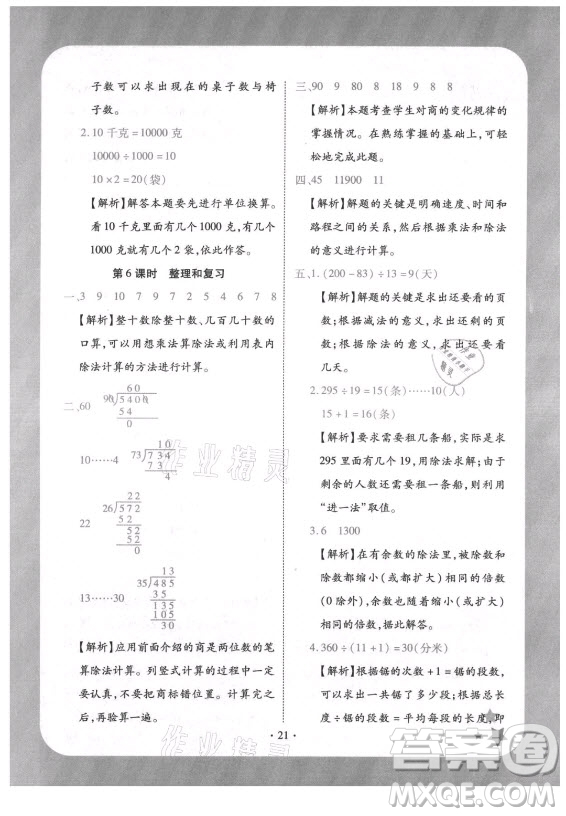 子数可以求出现在的桌子数与椅
子数。
2.10千克=10000克
10000÷1000=10
10×2=20(袋)
【解析】解答本题要先进行单位换算。
看10千克里面有几个1000克,有几个
1000克就有几个2袋,依此作答。
第6课时 整理和复习
一、3 9 10 7 9 7 2 5 4 6 7 8
【解析】整十数除整十数、几百几十数的
口算,可以想乘法算除法或利用表内
除法计算的方法进行计算。
二、60
60
90)5400
54
0
10……4
10
73)734
73
4
22
22
26)572
52
52
52
0
13……30
13
35)485
35
135
105
30
【解析】应用前面介绍的商是两位数的笔
算除法计算。列竖式计算的过程中一定
要认真,不要把商标错位置。计算完之
后,再验算一遍。
三、90 9 80 18 9 8 8
【解析】本题考查学生对商的变化规律的
掌握情况。在熟练掌握的基础上,可轻
松地完成此题。
四、45 11900 11
【解析】解题的关键是明确速度、时间和
路程之间的关系,然后根据乘法和除法
的意义进行计算。
五、1.(200-83)÷13=9(天)
【解析】解题的关键是求出还要看的页
数;根据减法的意义,求出还剩的页
数;根据除法的意义,求出还要看
几天。
2.295÷19=15(条)……10(人)
15+1=16(条)
【解析】根据题意,要求租几条船,就是
求295里面有几个19,用除法求解;
剩余的人数还需要租一条船,所以用
“进一法”取值。
3.6 1300
【解析】在有余数的除法里,被除数和
除数都缩小(或都扩大)相同的倍数
(0除外),余数也随着缩小(或扩大)相
同的倍数,据此解答。
4.360÷(11+1)=30(分米)
【解析】根据锯的次数+1=锯的段数,
可以求出一共锯了多少段;根据总长
度÷锯的段数=平均每段的长度,即
·21·
作业精灵
作业精灵
答案卷
MXQE.COM